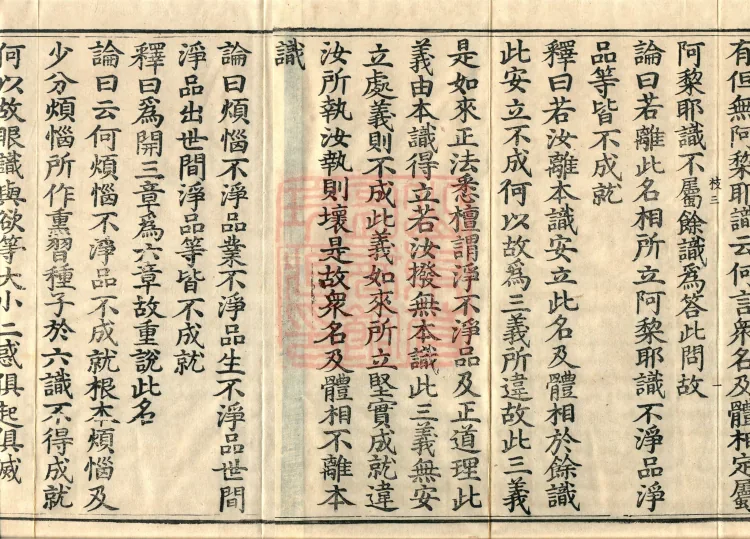 有但無阿黎耶識云何言衆名及體相定屬
阿黎耶識不屬餘識爲答此問故
論曰若離此名相所立阿黎耶識不淨品淨
品等皆不成就
釋曰若汝離本識安立此名及體相於餘識
此安立不成何以故爲三義所違故此三義
是如來正法悉檀謂淨不淨品及正道理此
義由本識得立若汝撥無本識此三義無安
立處義則不成此義如來所立堅實成就違
汝所執汝執則壞是故衆名及體相不離本
識
論曰煩惱不淨品業不淨品生不淨品世間
淨品出世間淨品等皆不成就
釋曰爲開三章爲六章故重說此名
論曰云何煩惱不淨品不成就根本煩惱及
少分煩惱所作熏習種子於六識不得成就
何以故眼識與欲等大小二惑俱起俱滅